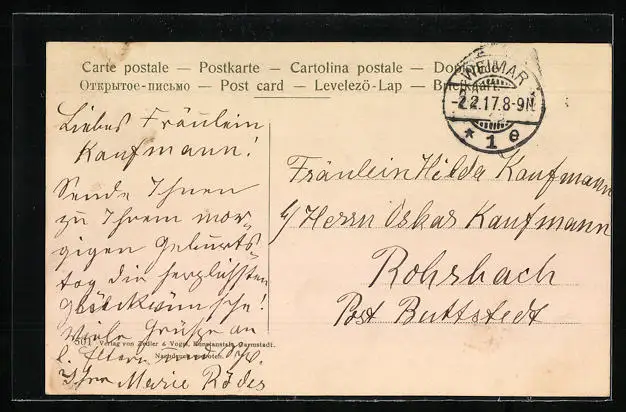 Carte postale — Postkarte — Cartolina postale —
Открытое-письмо — Post card — Levelezö-Lap —
WEIMAR
-2.2.17.8-9N
* 1 e
Liebes Fräulein
Kaufmann!
Sende Ihnen
zu Ihrem mor-
gigen Geburts-
tag die herzlichsten
Glückwünsche!
Viele Grüße an
l. Eltern und
Ihre Marie Rödes
Fräulein Hilda Kaufmann
c/ Herrn Oskar Kaufmann
Rohrbach
Post Buttstedt
501 Verlag von Zedler & Vogel, Kunstanstalt, Darmstadt.
Nachdruck verboten.